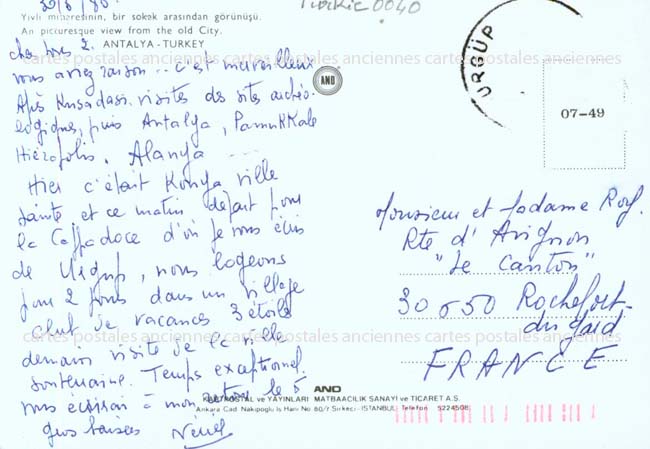 30/6/80.
Turkie 0040
Yivli minaretinin, bir sokak arasından görünüşü.
An picturesque view from the old City.
ANTALYA - TURKEY
vous aviez raison.. c'est merveilleux
Après Kusadasi, visites des sites archéo-
logiques, puis Antalya, PamuKKale
Hiérapolis, Alanya ....
Hier c'était Konya ville
sainte, et ce matin départ pour
la Cappadoce d'où je vous écris
de Urgup, nous logeons
pour 2 jours dans un village
club de vacances 3 étoiles
demain visite de la ville
souterraine. Temps exceptionnel.
vous écrirai à mon retour le 5
gros baisers
AND
ÜRGÜP
07-49
Monsieur et Madame Roy.
Rte d'Avignon
"Le Canton"
30650 Rochefort-
du Gard
FRANCE
cartes postales anciennes cartes postales anciennes cartes postales anciennes
cartes postales anciennes cartes postales anciennes cartes postales anciennes
AND
KARTPOSTAL ve YAYINLARI MATBAACILIK SANAYI ve TICARET A.S.
Ankara Cad Nakipoglu Is Hanı No 80/7 Sirkeci-ISTANBUL Telefon 5224508